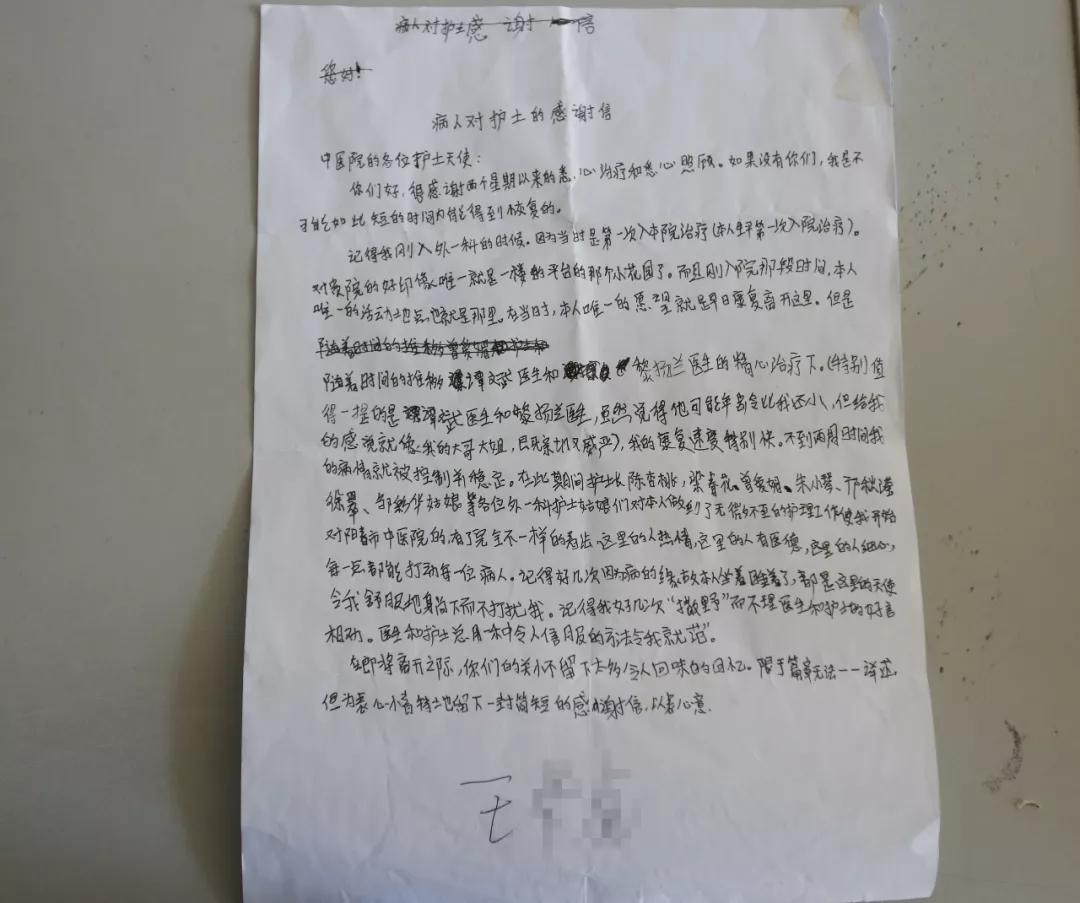 病人对护士感谢信
您好!
病人对护士的感谢信
中医院的各位护士天使:
你们好,很感谢两个星期以来的悉心治疗和悉心照顾。如果没有你们,我是不
可能如此短的时间内能得到恢复的。
记得我刚入外一科的时候。因为当时是第一次入本院治疗(本人生平第一次入院治疗)。
对贵院的好印像唯一就是一楼的平台的那个小花园了。而且刚入院那段时间,本人
唯一的活动地点也就是那里。在当时,本人唯一的愿望就是早日康复离开这里。但是
随着时间的推移
随着时间的推移谭文武医生和黎扬兰医生的精心治疗下。(特别值
得一提的是谭文武医生和黎扬兰医生,虽然觉得他可能年令比我还小,但给我
的感觉就像我的大哥大姐,既亲切又威严),我的康复速度特别快。不到两周时间我
的病情就被控制并稳定。在此期间护士长陈杏桃,梁春花、曾爱娟、朱小琴、邝秋莲
徐翠、邹彩华姑娘等各位外一科护士姑娘们对本人做到了无微不至的护理工作使我开始
对阳春市中医院的,有了完全不一样的看法,这里的人热情,这里的人有医德,这里的人细心,
每一点都能打动每一位病人。记得好几次因为病的缘故本人坐着睡着了,都是这里的天使
令我舒服地身治下而不打扰我。记得我好几次“撒野”而不理医生和护士的好言
相劝。医生和护士总用一种令人信服的方法令我就“范”。
在即将离开之际,你们的关小不留下太多令人回味的回忆。限于篇章无法一一详述,
但为表心小斋特地留下一封简短的感谢信,以表心意.
王